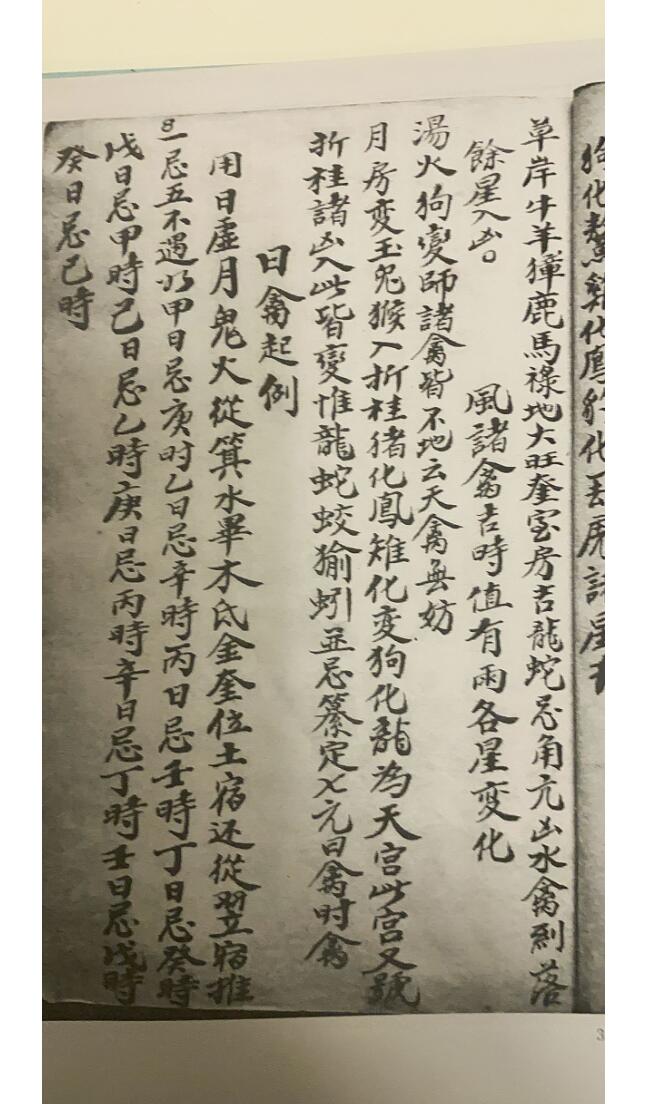 狗化鰲鷄化鷹豹化
草岸牛羊獐鹿馬祿地大旺奎室房吉龍蛇忌角亢凶水禽到落
餘星入凶。　風諸禽吉時值有雨各星变化
湯火狗变師諸禽皆不地云天禽無妨
月房变玉兎猴入折桂猪化鳳雉化变狗化龍為天宫此宫又號
折桂諸凶入此皆变惟龍蛇蛟㺄蚓並忌纂定七元日禽时禽
日禽起例
用日虚月鬼火從箕水畢木氐金奎位土宿还從翌宿推
一忌五不遇 甲日忌庚时乙日忌辛時丙日忌壬時丁日忌癸時
戊日忌甲時己日忌乙時庚日忌丙時辛日忌丁時壬日忌戊時
癸日忌己時
3